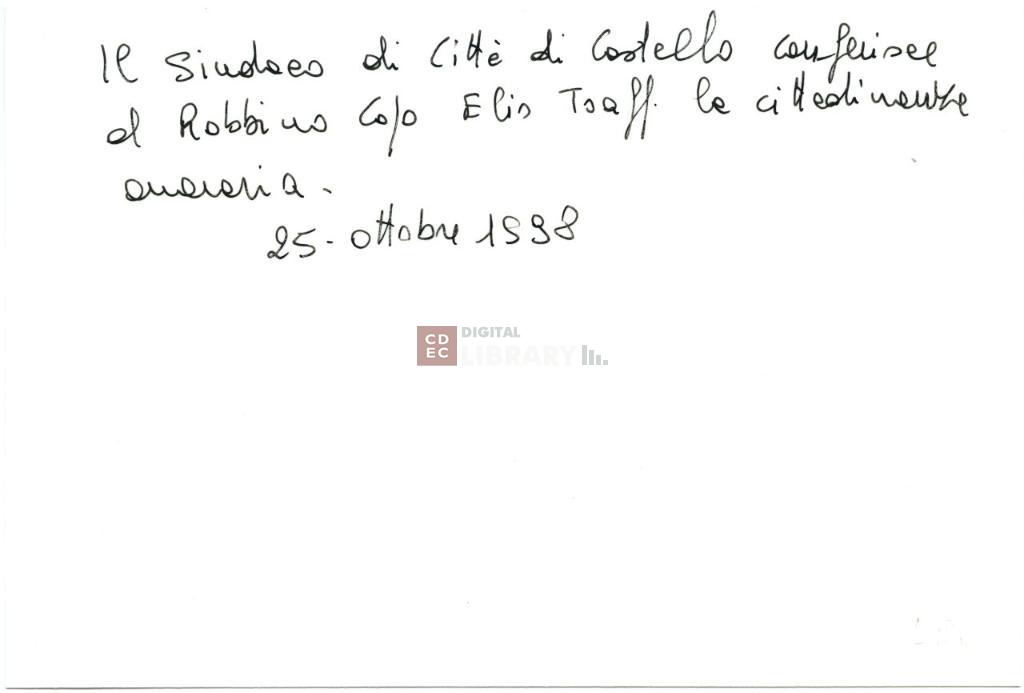 Il Sindaco di Città di Castello conferisce
al Rabbino Capo Elio Toaff. la cittadinanza
onoraria.
25. ottobre 1998
CD
EC
DIGITAL
LIBRARY